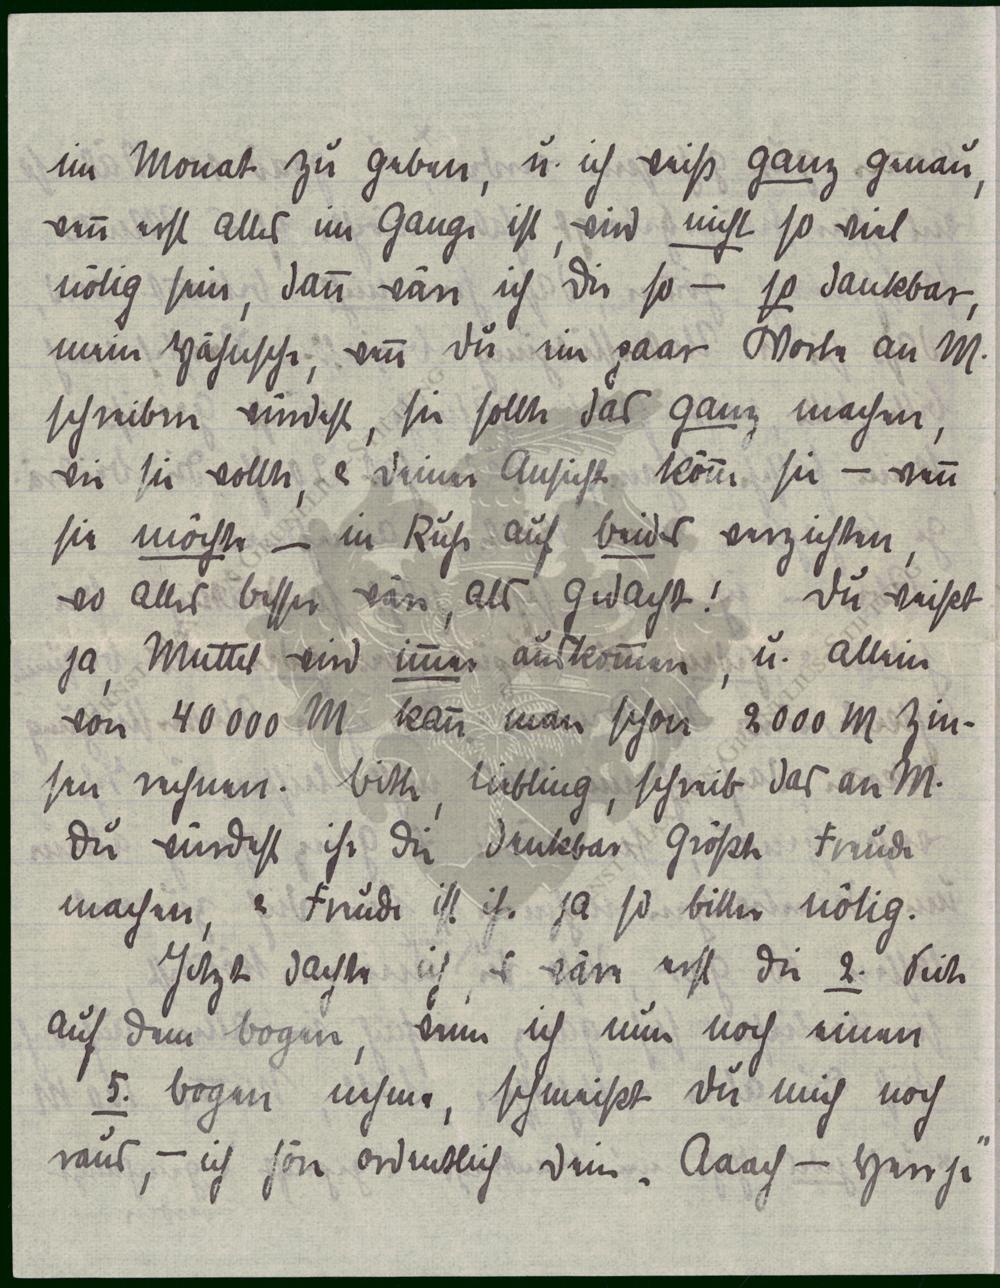 im Monat zu geben, u. ich weiß ganz genau,
wen̄ erst alles im Gange ist, wird nicht so viel
nötig sein, dan̄ wäre ich Dir so — so dankbar,
mein Hähnsche, wen̄ Du ein paar Worte an M.
schreiben würdest, sie sollte das ganz machen,
wie sie wollte, & Deiner Ansicht kön̄e sie — wen̄
sie möchte — in Ruhe auf beides verzichten,
wo alles besser wäre, als gedacht! Du weißt
ja, Muttel wird im̄er auskom̄en!, u. allein
von 40 000 M kan̄ man schon 2000 M Zin-
sen rechnen. bitte, Liebling, schreib das an M.
Du würdest ihr die denkbar größte Freude
machen, & Freude ist ihr ja so bitter nötig.
Jetzt dachte ich, es wäre erst die 2. Seite
auf dem bogen, wenn ich nun noch einen
5. bogen nehme, schmeißt Du mich noch
raus, — ich höre ordentlich Dein „Aaach — Herrje"